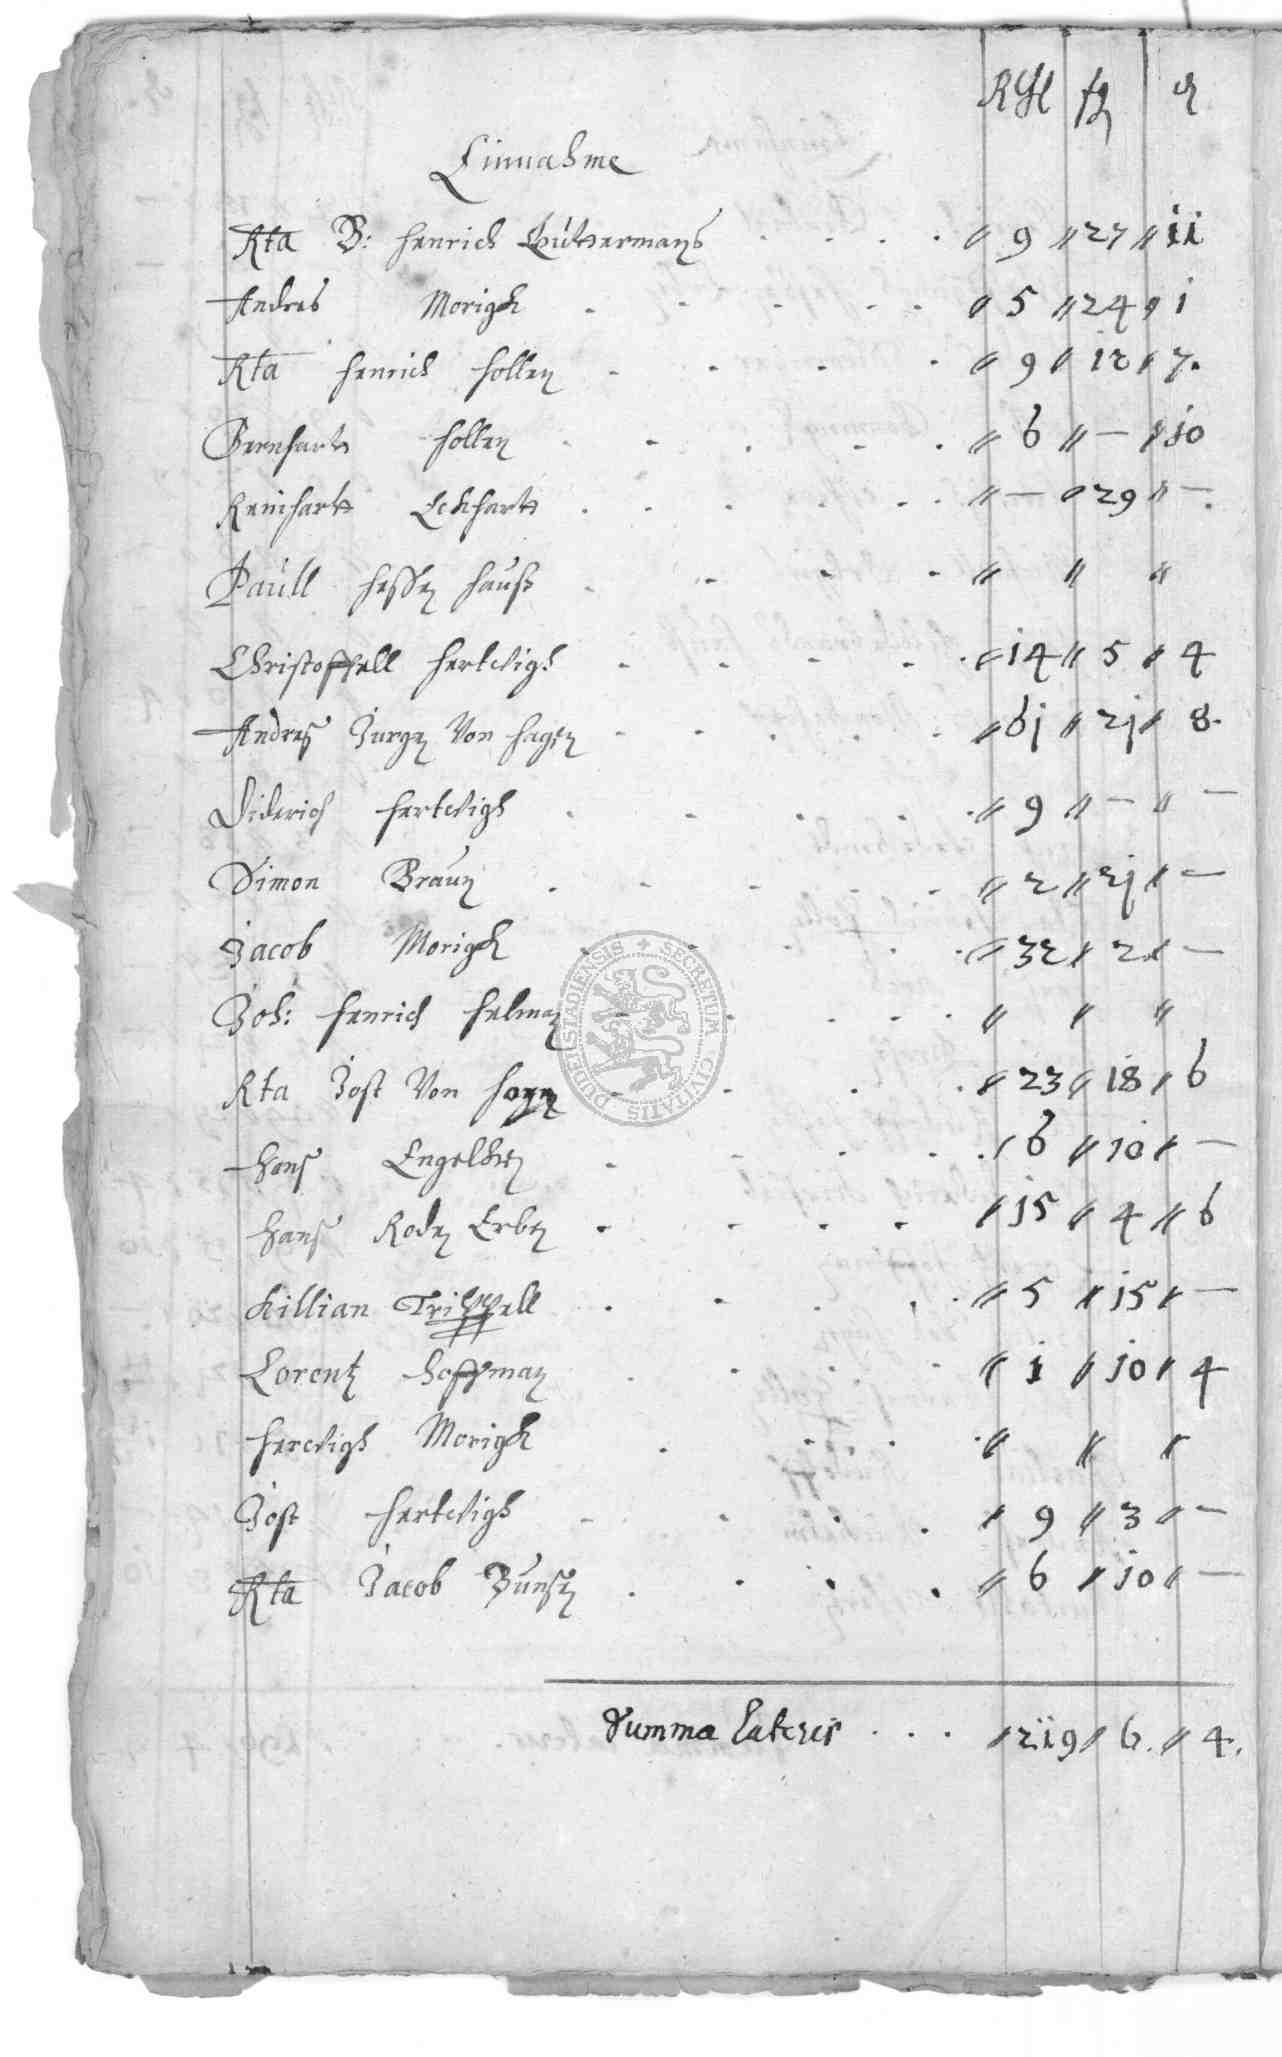 Rthl fg ₰
Einnahme
Rta B: Henrich Güttermans 9 27 11
Andres Morigk 5 24 1
Rta Henrich Hollen 9 12 7.
Bernhartt Hollen 6 — 10
Reinhartt Eckhartt — 29 —
Paull Hessen Hauß
Christoffell Hertwigh 14 5 4
Andreß Jurgen Von Hagen 61 21 8.
Diderich Hertwigh 9 — —
Simon Braun 2 21 —
Jacob Morigk 32 2 —
Joh: Henrich Helman
Rta Jost Von 23 18 6
Hanß Engelken 6 10 —
Hanß Roden Erben 15 4 6
Killian Trippell 5 15 —
Lorentz Hoffman 1 10 4
Herwigh Morigk
Jost Hertwigh 9 3 —
Rta Jacob Zunsen 6 10 —
Summa Lateris 219 6. 4.
SECRETUM CIVITATIS DUDERSTADIENSIS